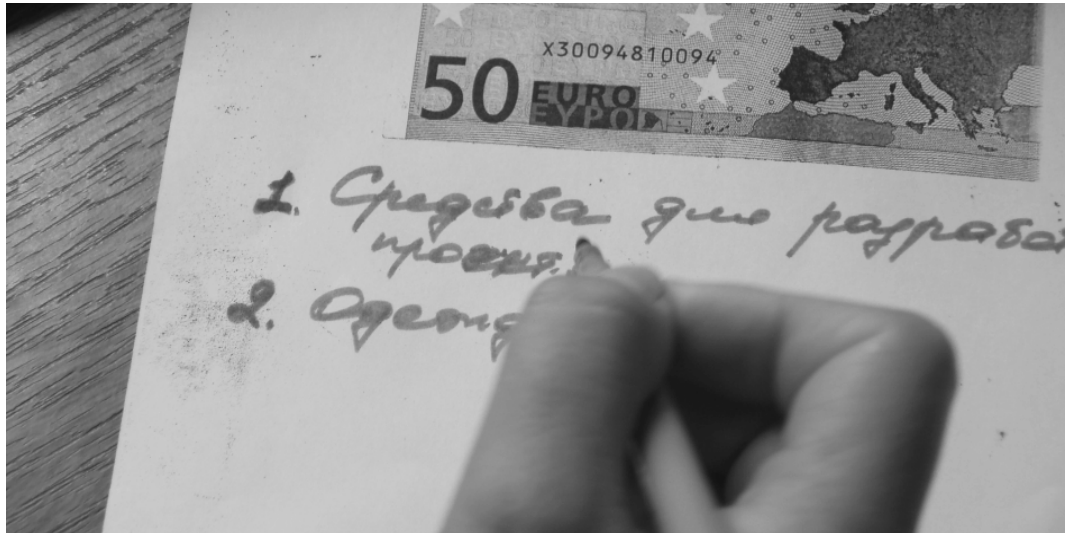 X30094810094
50 EURO
ΕΥΡΩ
1. Средства для разработ
проект.
2. Одежд